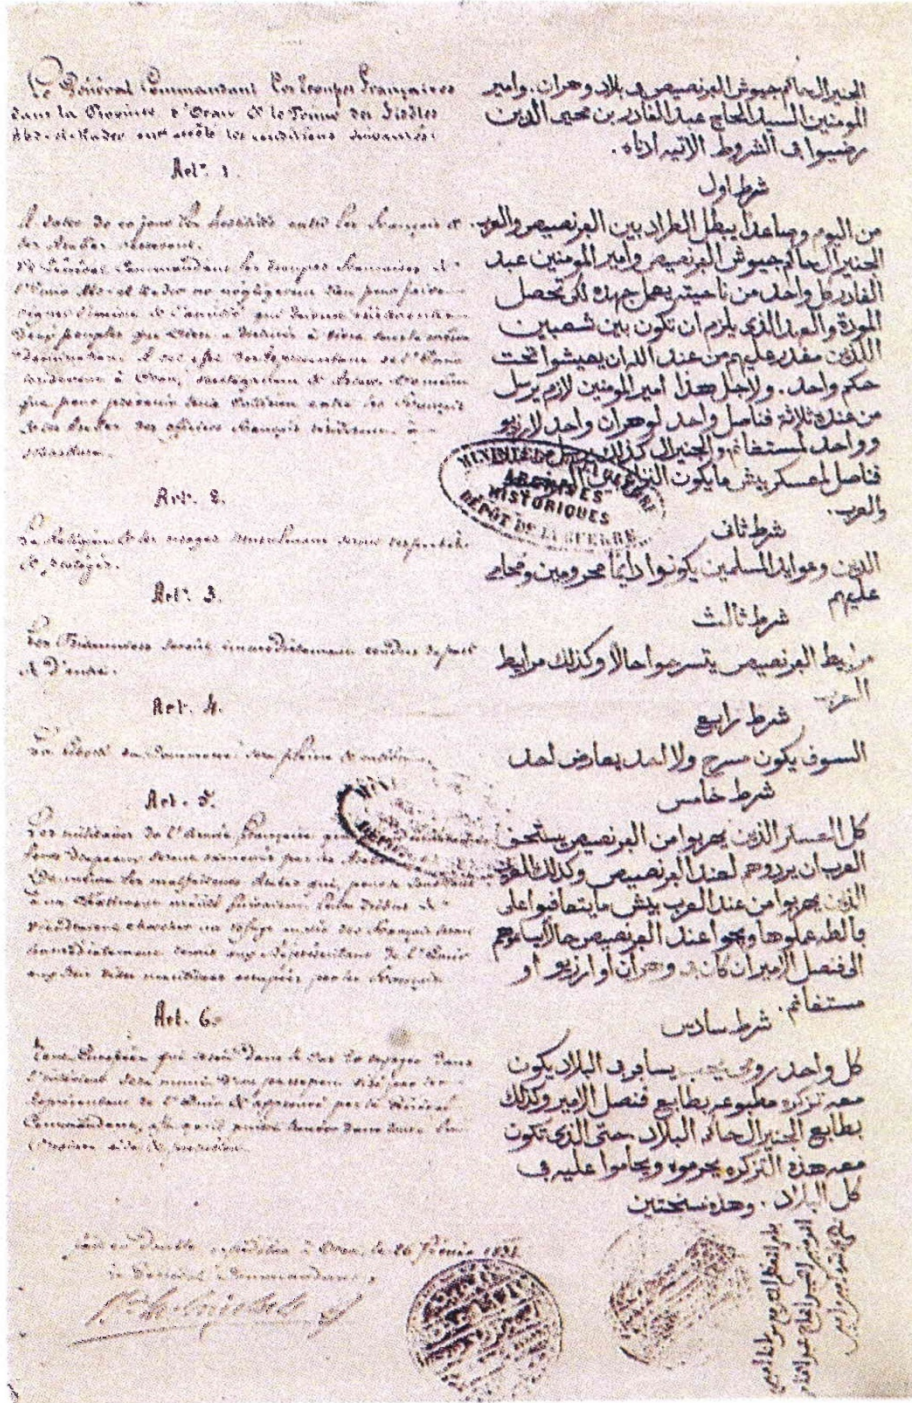 Le Général Commandant les troupes Françaises
dans la Province d'Oran & le Prince des fidèles
Abd-el-Kader ont arrêté les conditions suivantes:
Art. 1.
À dater de ce jour les hostilités entre les Français &
les Arabes cesseront.
Le Général Commandant les troupes françaises &
l'Émir Abd-el-Kader ne négligeront rien pour faire
régner l'union & l'amitié qui doivent exister entre
deux peuples que Dieu a destinés à vivre sous la même
domination. À cet effet des représentans de l'Émir
résideront à Oran, Mostaganem & Arzew. De même
que pour prévenir toute collision entre les Français
& les Arabes des officiers français résideront à
Mascara.
Art. 2.
La Religion & les usages musulmans seront respectés
& protégés.
Art. 3.
Les Prisonniers seront immédiatement rendus de part
& d'autre.
Art. 4.
La liberté du Commerce sera pleine & entière.
Art. 5.
Les militaires de l'Armée française qui
leurs drapeaux seront ramenés par les Arabes
De même les malfaiteurs Arabes qui, pour se soustraire
à un châtiment mérité fuiraient leurs tribus &
viendraient chercher un refuge auprès des Français seront
immédiatement remis aux représentans de l'Émir
aux trois villes maritimes occupées par les Français.
Art. 6.
Tout Européen qui serait dans le cas de voyager dans
l'intérieur sera muni d'un passeport visé par le
représentant de l'Émir & approuvé par le Général
Commandant, afin qu'il puisse trouver dans toute la
Province aide & protection.
fait en double expédition à Oran, le 26 février
le Général Commandant,
الجنرال حاكم جيوش الفرنصيص في بلاد وهران. وامير
المومنين السيد الحاج عبد القادر بن محي الدين
رضيوا في الشروط الاتيه ادناه.
شرط اول
من اليوم وصاعدا يبطل الطراد بين الفرنصيص والعرب
الجنيرال حاكم جيوش الفرنصيص وامير المومنين عبد
القادر كل واحد من ناحيته يعمل جهده لكي تحصل
المودة والعهد الذي يلزم ان تكون بين شعبين
اللذين مقدر عليهم من عند الله ان يعيشوا تحت
حكم واحد. ولاجل هذا امير المومنين لازم يرسل
من عنده ثلاثة قناصل واحد لوهران واحد لارزيو
وواحد لمستغانم والجنيرال كذلك يرسل
قناصل لمعسكر بيش ما يكون النزاع بين
والعرب.
شرط ثانى
الدين وعوايد المسلمين يكونوا دايمًا محرومين ومحامى
عليهم
شرط ثالث
مرابيط الفرنصيص يتسرحوا حالاً وكذلك مرابيط
العرب
شرط رابع
السوق يكون مسرح ولا احد يعارض احد
شرط خامس
كل العسكر الذين يهربوا من الفرنصيص يستحق
العرب ان يردوهم لعند الفرنصيص وكذلك العرب
الذين يهربوا من عند العرب بيش ما يتعاقبوا على
عملوها ويجوا عند الفرنصيص حالاً
الى قنصل الامير ان كان في وهران او ارزيو او
مستغانم.
شرط سادس
كل واحد رومى يحب يسافر في البلاد يكون
معه تذكره مطبوعه بطابع قنصل الامير وكذلك
بطابع الجنيرال حاكم البلاد. حتى الذى تكون
معه هذه التزكره يحرموه ويحاموا عليه في
كل البلاد. وهذه نسختين
MINISTÈRE DE LA GUERRE
ARCHIVES
HISTORIQUES
DÉPÔT DE LA GUERRE